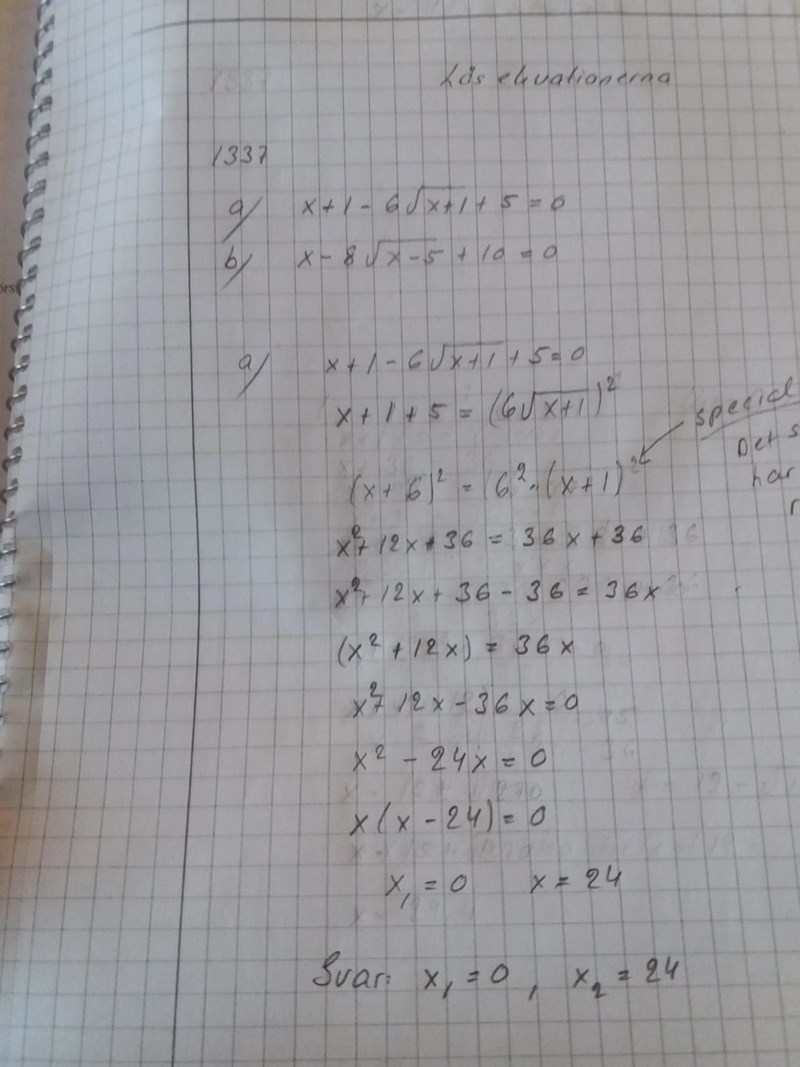 Lös ekvationerna
1337
a) x+1-6√(x+1)+5=0
b) x-8√(x-5)+10=0
a) x+1-6√(x+1)+5=0
x+1+5=(6√(x+1))²
special
Det s
(x+6)²=6²·(x+1)
har
x²+12x+36=36x+36
x²+12x+36-36=36x
(x²+12x)=36x
x²+12x-36x=0
x²-24x=0
x(x-24)=0
x₁=0 x=24
Svar: x₁=0, x₂=24